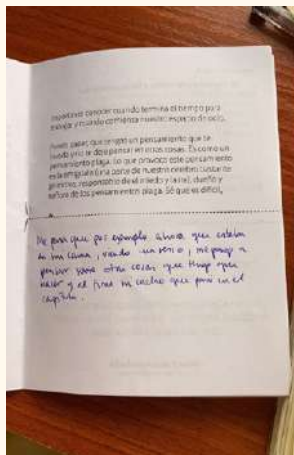 importante conocer cuando termina el tiempo para
trabajar y cuando comienza nuestro espacio de ocio.
Puede pasar, que tengas un pensamiento que te
impida pensar en otras cosas. Es como un
pensamiento plaga. Lo que provoca este pensamiento
es la amígdala (una parte de nuestro cerebro
responsable del miedo y la ira), dueña y
señora de los pensamientos plaga. Sé que es difícil,
Me pasa que por ejemplo ahora que estaba
en mi cama, viendo una serie, me pongo a
pensar sobre otras cosas que tengo que
hacer y al final no cacho que pasó en el
capítulo.